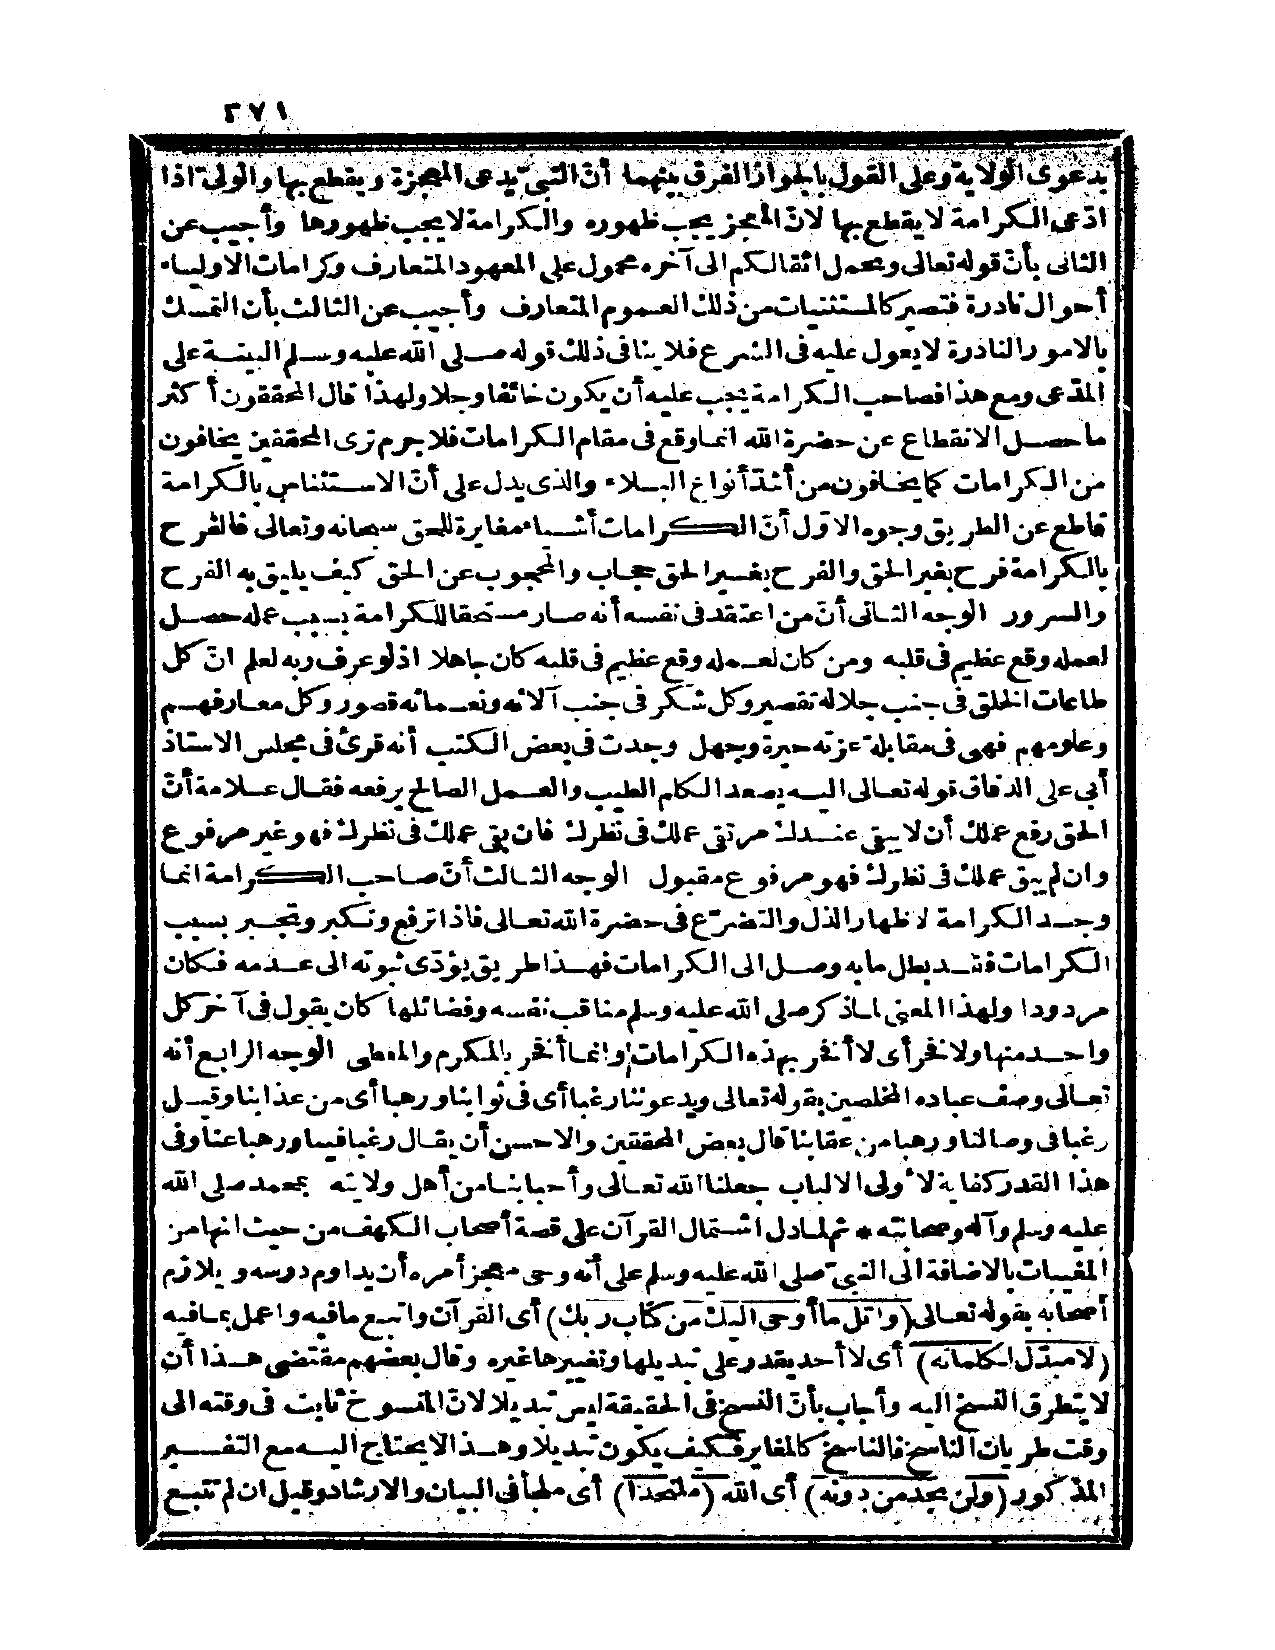 ٣٧١
بدعوى الولاية وعلى القول بالجواز الفرق بينهما أنّ النبيّ يدعى المعجزة ويقطع بها والولىّ اذا
ادّعى الكرامة لا يقطع بها لانّ المعجز يجب ظهوره والكرامة لا يجب ظهورها وأجيب عن
الثانى بأنّ قوله تعالى وتحمل اثقالكم الى آخره محمول على المعهود المتعارف وكرامات الاولياء
أحوال نادرة فتصير كالمستثنيات من ذلك العموم المتعارف وأجيب عن الثالث بأن التمسك
بالامور النادرة لا يعول عليه فى الشرع فلا ينافى ذلك قوله صلى الله عليه وسلم البينة على
المدّعى ومع هذا فصاحب الكرامة يجب عليه أن يكون خائفا وجلا ولهذا قال المحققون أكثر
ما حصل الانقطاع عن حضرة الله انما وقع فى مقام الكرامات فلا جرم ترى المحققين يخافون
من الكرامات كما يخافون من أشدّ أنواع البلاء والذى يدل على أنّ الاستئناس بالكرامة
قاطع عن الطريق وجوه الاوّل أنّ الكرامات أشياء مغايرة للحق سبحانه وتعالى فالفرح
بالكرامة فرح بغير الحق والفرح بغير الحق حجاب والمحجوب عن الحق كيف يليق به الفرح
والسرور الوجه الثانى أنّ من اعتقد فى نفسه أنه صار مستحقا للكرامة بسبب عمله حصل
لعمله وقع عظيم فى قلبه ومن كان لعمله وقع عظيم فى قلبه كان جاهلا اذ لو عرف ربه لعلم انّ كل
طاعات الخلق فى جنب جلاله تقصير وكل شكر فى جنب آلائه ونعمائه قصور وكل معارفهم
وعلومهم فهى فى مقابلة عزته حيرة وجهل وجدت فى بعض الكتب أنه قرئ فى مجلس الاستاذ
أبى على الدقاق قوله تعالى اليه يصعد الكلم الطيب والعمل الصالح يرفعه فقال علامة أنّ
الحق رفع عملك أن لا يبقى عندك مرتقى عملك فى نظرك فان بقى عملك فى نظرك فهو غير مرفوع
وان لم يبق عملك فى نظرك فهو مرفوع مقبول الوجه الثالث أنّ صاحب الكرامة انما
وجد الكرامة لاظهار الذل والتضرّع فى حضرة الله تعالى فاذا ترفع وتكبر وتجبر بسبب
الكرامات فقد بطل ما به وصل الى الكرامات فهذا طريق يؤدّى ثبوته الى عدمه فكان
مردودا ولهذا المعنى لما ذكر صلى الله عليه وسلم مناقب نفسه وفضائلها كان يقول فى آخر كل
واحد منها ولا فخر أى لا أفخر بهذه الكرامات وانما أفخر بالمكرم والمعطى الوجه الرابع أنه
تعالى وصف عباده المخلصين بقوله تعالى ويدعوننا رغبا أى فى ثوابنا ورهبا أى من عذابنا وقيل
رغبا فى وصالنا ورهبا من عقابنا قال بعض المحققين والاحسن أن يقال رغبا فينا ورهبا عنا وفى
هذا القدر كفاية لاولى الالباب جعلنا الله تعالى وأحبابنا من أهل ولايته بمحمد صلى الله
عليه وسلم وآله وصحابته * ثم لما دل اشتمال القرآن على قصة أصحاب الكهف من حيث انها من
المغيبات بالاضافة الى النبيّ صلى الله عليه وسلم على أنه وحى معجز أمره أن يداوم درسه ويلازم
أصحابه بقوله تعالى (واتل ما أوحى اليك من كتاب ربك) أى القرآن واتبع ما فيه واعمل بما فيه
(لا مبدّل لكلماته) أى لا أحد يقدر على تبديلها وتغييرها غيره وقال بعضهم مقتضى هذا أن
لا يتطرق النسخ اليه وأجاب بأنّ النسخ فى الحقيقة ليس تبديلا لانّ المنسوخ ثابت فى وقته الى
وقت طريان الناسخ فالناسخ كالمغاير فكيف يكون تبديلا وهذا لا يحتاج اليه مع التفسير
المذكور (ولن تجد من دونه) أى الله (ملتحدا) أى ملجأ فى البيان والارشاد وقيل ان لم تتبع